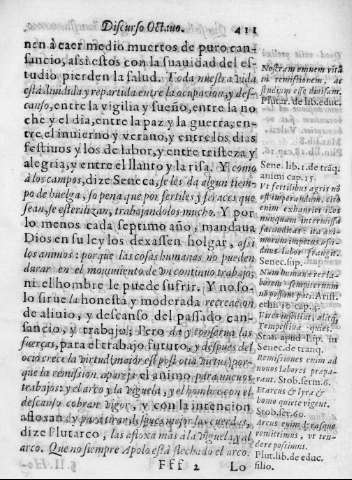 Discurso Octauo. 411
nen à caer medio muertos de puro can-
sancio, assi estos con la suauidad del es-
tudio pierden la salud. Toda nuestra vida
está diuidida y repartida entre la ocupacion, y des-
canso, entre la vigilia y sueño, entre la no-
che y el dia, entre la paz y la guerra, en-
tre el inuierno y verano, y entre los dias
festiuos y los de labor, y entre tristeza y
alegria, y entre el llanto y la risa. Y como
à los campos, dize Seneca, se les dà algun tiem-
po de huelga, so pena que por fertiles y feraces que
sean, se esterilizan, trabajandolos mucho. Y por
lo menos cada septimo año, mandaua
Dios en su ley los dexassen holgar, assi
los animos: porque las cosas humanas no pueden
durar en el mouimiento de vn continuo trabajo;
ni el hombre le puede sufrir. Y no so-
lo sirue la honesta y moderada recreacion
de aliuio, y descanso del passado can-
sancio, y trabajo; Pero dà y conserua las
fuerças, para el trabajo futuro, y despues del
ocio crece la virtud (maior est post otia virtus) por-
que la remission, apareja el animo para nueuos
trabajos: y el arco y la vigueta, y el hombre con el
descanso cobran vigor, y con la intencion
afloxan da y para tirar despues mejor las cuerdas,
dize Plutarco, las afloxa mas à la viguela, y al
arco. Que no siempre Apolo està flechado el arco.
Fff 2 Lo
Nostram omnem vitã
in remissionem, ac
studium esse diuisam.
Plutar. de lib. educ.
Sene. lib. 1. de traq.
animi cap. 15.
Vt fertilibus agris nõ
est imperandum, cito
enim exhaurit illos
nunquam intermissa
fœcunditas: ita ani-
morum impetus assi-
duus labor frangit.
Senec. sup.
Num humanæ res la-
borem sempiternum
nõ possunt pati. Arist.
Stob. serm. 6.
Arcus & lyra &
homo quiete vigent.
Stob. ser. 60.
Plut. lib. de educ.
filio.